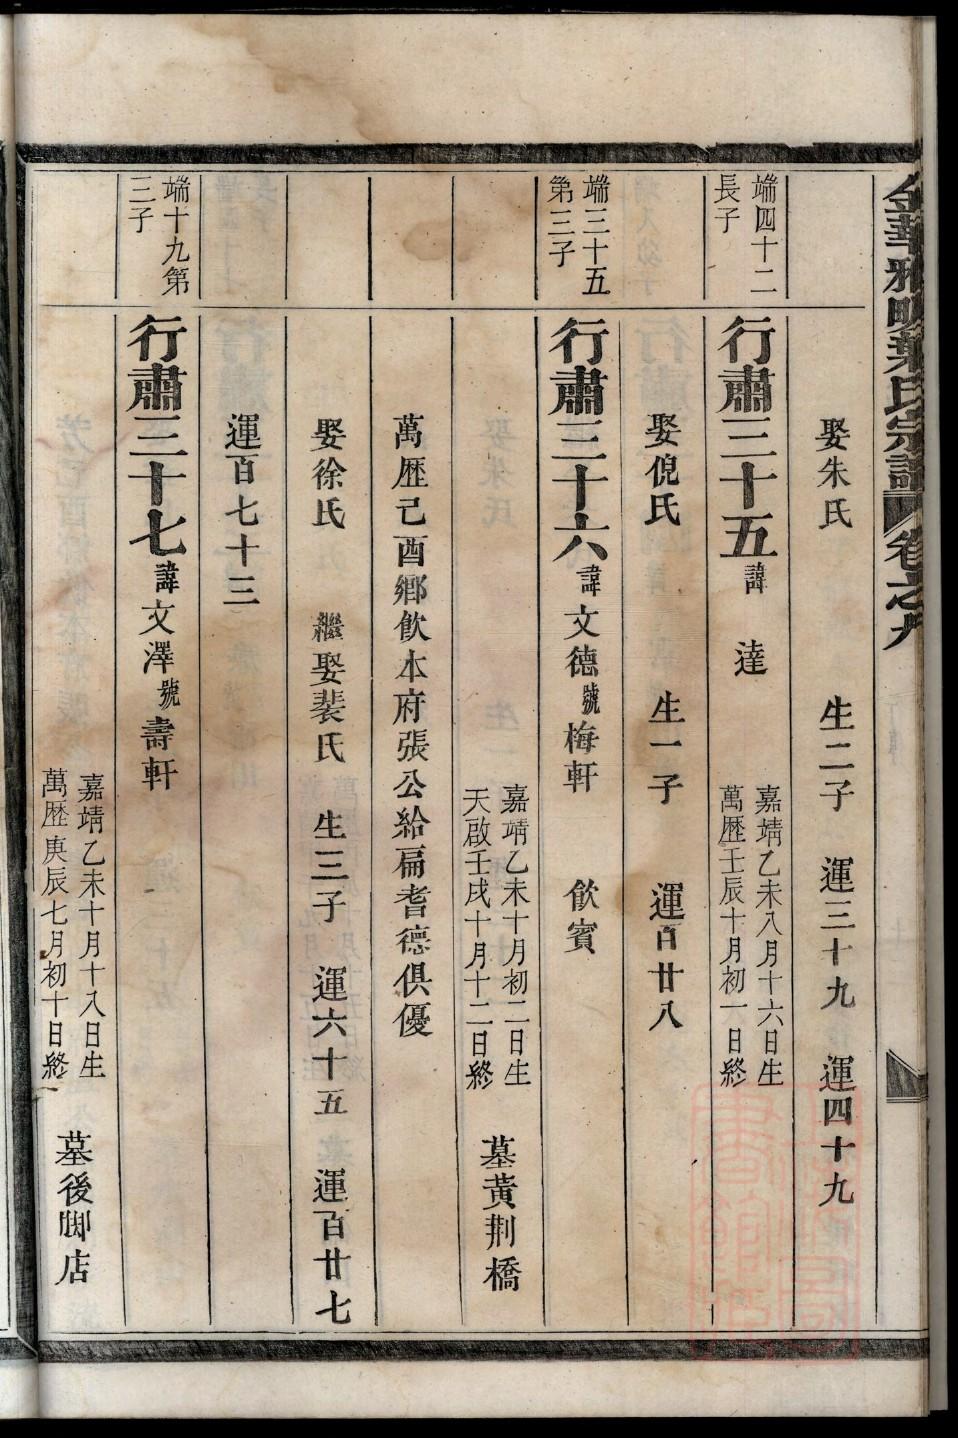 金華雅畈葉氏宗譜 卷之九
娶朱氏 生二子 運三十九 運四十九
端四十二
長子
行肅三十五 諱 達
嘉靖乙未八月十六日生
萬歷壬辰十月初一日終
娶倪氏 生一子 運百廿八
端三十五
第三子
行肅三十六 諱文德 號梅軒 飲賓
嘉靖乙未十月初二日生
天啟壬戌十月十二日終
墓黃荆橋
萬歷己酉鄉飲本府張公給扁耆德俱優
娶徐氏 繼娶裴氏 生三子 運六十五 運百廿七
運百七十三
端十九第
三子
行肅三十七 諱文澤 號壽軒
嘉靖乙未十月十八日生
萬歷庚辰七月初十日終
墓後脚店